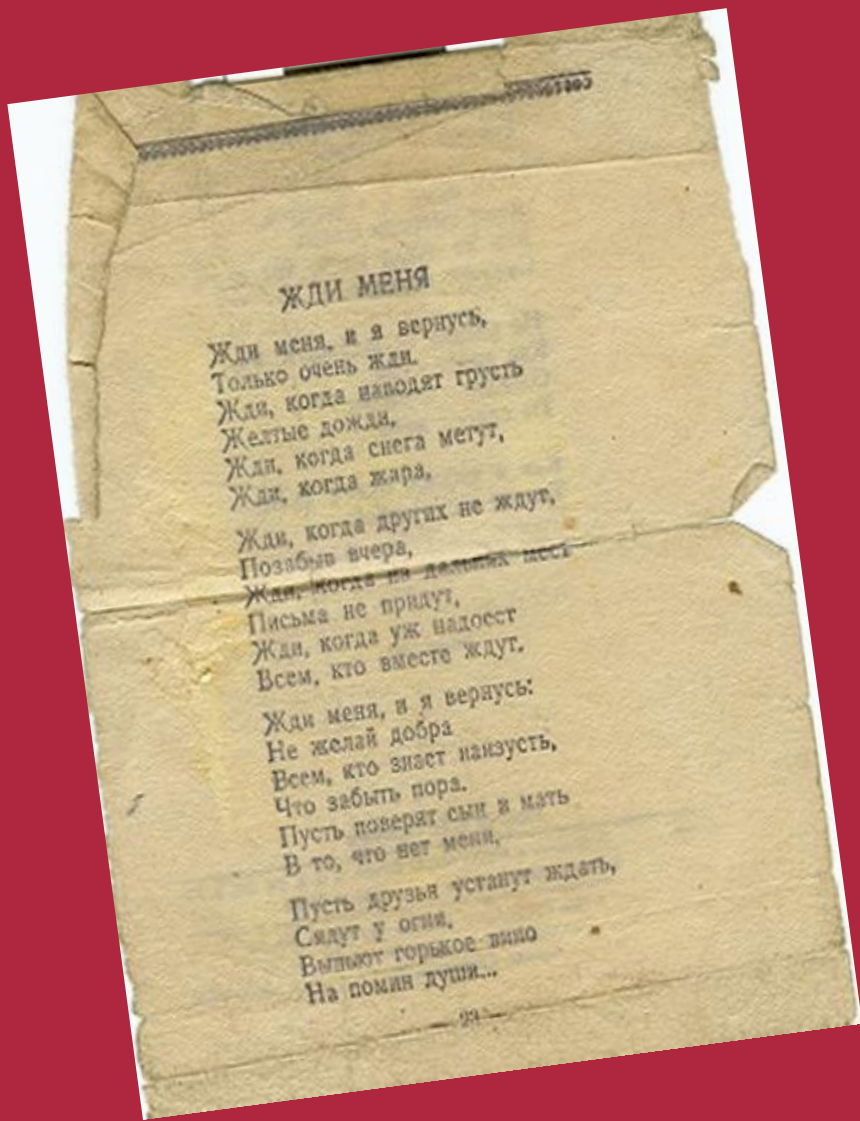 ЖДИ МЕНЯ
Жди меня, и я вернусь,
Только очень жди.
Жди, когда наводят грусть
Желтые дожди,
Жди, когда снега метут,
Жди, когда жара,
Жди, когда других не ждут,
Позабыв вчера,
Жди, когда из дальних мест
Письма не придут,
Жди, когда уж надоест
Всем, кто вместе ждут.
Жди меня, и я вернусь:
Не желай добра
Всем, кто знает наизусть,
Что забыть пора.
Пусть поверят сын и мать
В то, что нет меня,
Пусть друзья устанут ждать,
Сядут у огня,
Выпьют горькое вино
На помин души...